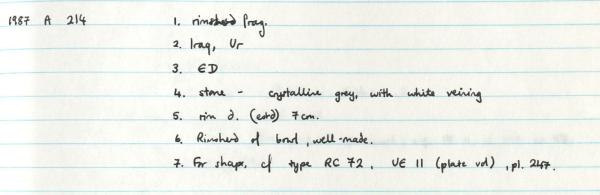 1987 A 214 1. rimsherd frag.
2. Iraq, Ur
3. ED
4. stone - crystalline grey, with white veining
5. rim d. (estd) 7cm.
6. Rimsherd of bowl, well-made.
7. For shape, cf type RC 72, UE II (plate vol), pl. 247.